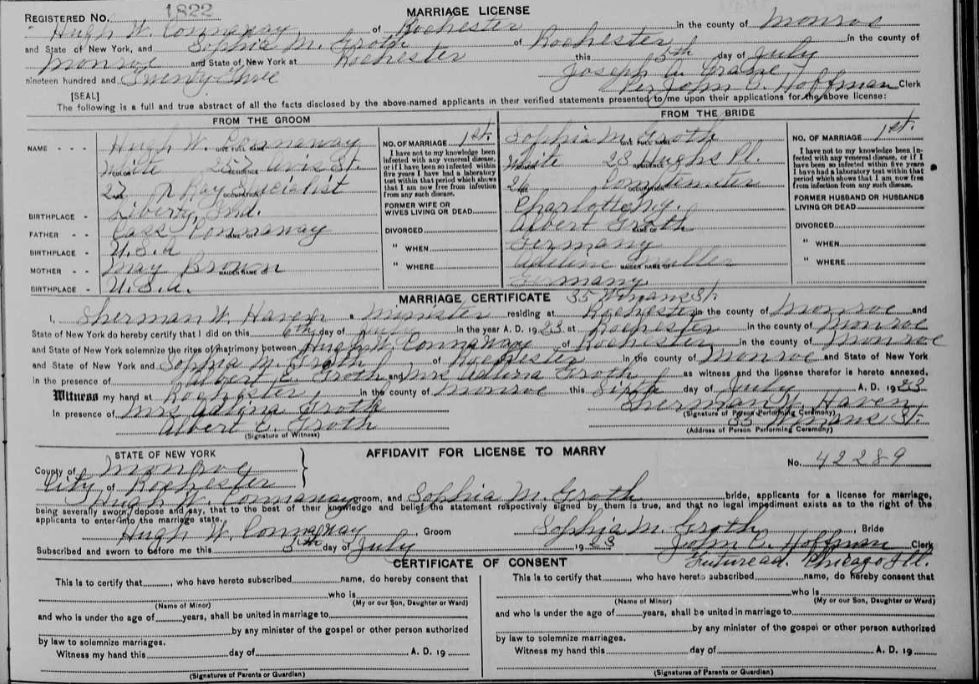 REGISTERED NO. 1822
MARRIAGE LICENSE
Hugh W. Connaway of Rochester in the county of Monroe
and State of New York, and Sophia M. Groth of Rochester in the county of
Monroe and State of New York at Rochester this 5th day of July
nineteen hundred and Twenty Three Joseph C.
[SEAL] Per John C. Hoffman Clerk
The following is a full and true abstract of all the facts disclosed by the above-named applicants in their verified statements presented to me upon their applications for the above license:
FROM THE GROOM
NAME - - Hugh W. Connaway
White 257 Avis St.
27 X Ray Specialist
BIRTHPLACE - Liberty, Ind.
FATHER - - Cass Connaway
BIRTHPLACE - U.S.A
MOTHER - - May Brown
BIRTHPLACE - U.S.A.
NO. OF MARRIAGE 1st.
I have not to my knowledge been
infected with any venereal disease,
or if I have been so infected within
five years I have had a laboratory
test within that period which shows
that I am now free from infection
from any such disease.
FORMER WIFE OR
WIVES LIVING OR DEAD
DIVORCED
" WHEN
" WHERE
FROM THE BRIDE
Sophia M. Groth
White 23 Hughs Pl.
Comptometer
Charlotte N.Y.
Albert Groth
Germany
Adeline Muller
Germany
NO. OF MARRIAGE 1st.
I have not to my knowledge been in-
fected with any venereal disease, or if I
have been so infected within five years
I have had a laboratory test within that
period which shows that I am now free
from infection from any such disease.
FORMER HUSBAND OR HUSBANDS
LIVING OR DEAD
DIVORCED
" WHEN
" WHERE
MARRIAGE CERTIFICATE 35 Winans St.
I, Sherman W. Haven a Minister residing at Rochester in the county of Monroe and
State of New York do hereby certify that I did on this 6th day of July in the year A. D. 1923 at Rochester in the county of Monroe
and State of New York solemnize the rites of matrimony between Hugh W. Connaway of Rochester in the county of Monroe
and State of New York and Sophia M. Groth of Rochester in the county of Monroe and State of New York
in the presence of Albert E. Groth and Mrs Adena Groth as witness and the license therefor is hereto annexed.
Witness my hand at Rochester in the county of Monroe this Sixth day of July A. D. 1923
In presence of Mrs Adena Groth Sherman W. Haven
(Signature of Person Performing Ceremony)
Albert E. Groth 35 Winans St.
(Signature of Witness) (Address of Person Performing Ceremony)
STATE OF NEW YORK
County of Monroe
City of Rochester
AFFIDAVIT FOR LICENSE TO MARRY
No. 42289
Hugh W. Connaway groom, and Sophia M. Groth bride, applicants for a license for marriage,
being severally sworn, depose and say, that to the best of their knowledge and belief the statement respectively signed by them is true, and that no legal impediment exists as to the right of the
applicants to enter into the marriage state.
Hugh W. Connaway Groom Sophia M. Groth Bride
Subscribed and sworn to before me this 5th day of July 1923 John C. Hoffman Clerk
CERTIFICATE OF CONSENT
Future ad. Chicago Ill.
This is to certify that, who have hereto subscribed name, do hereby consent that
who is
(Name of Minor) (My or our Son, Daughter or Ward)
and who is under the age of years, shall be united in marriage to
by any minister of the gospel or other person authorized
by law to solemnize marriages.
Witness my hand this day of A. D. 19
(Signatures of Parents or Guardian)
This is to certify that, who have hereto subscribed name, do hereby consent that
who is
(Name of Minor) (My or our Son, Daughter or Ward)
and who is under the age of years, shall be united in marriage to
by any minister of the gospel or other person authorized
by law to solemnize marriages.
Witness my hand this day of A. D. 19
(Signatures of Parents or Guardian)